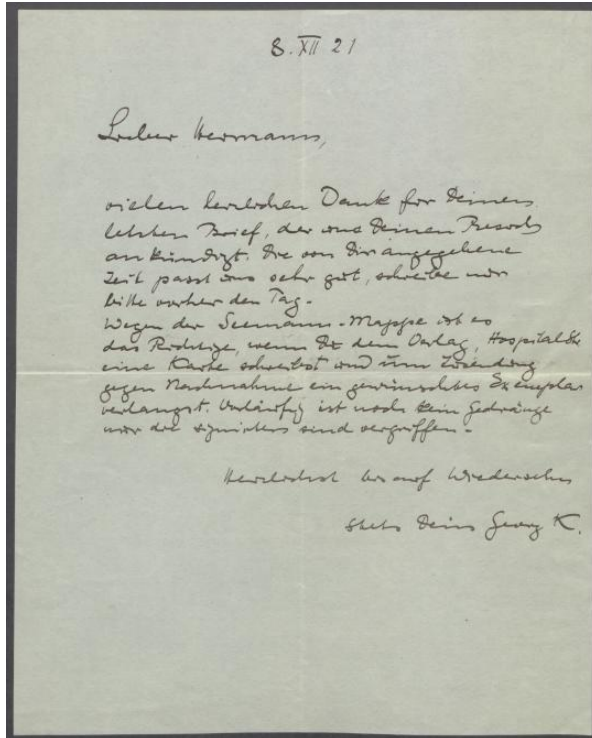 8. XII 21
Lieber Hermann,
vielen herzlichen Dank für Deinen
letzten Brief, der uns Deinen Besuch
ankündigt. Die von Dir angegebene
Zeit passt uns sehr gut, schreibe mir
bitte vorher den Tag.
Wegen der Seemann-Mappe ist es
das Richtige, wenn Du dem Verlag, Hospitalstr
eine Karte schreibst und um Zusendung
gegen Nachnahme ein gewünschtes Exemplar
verlangst. Vorläufig ist noch kein Gedränge
nur die signierten sind vergriffen.
Herzlichst bis auf Wiedersehn
stets Dein Georg K.